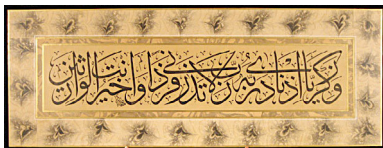 وزكريا اذ نادى ربه رب لا تذرنى فردا وانت خير الوارثين